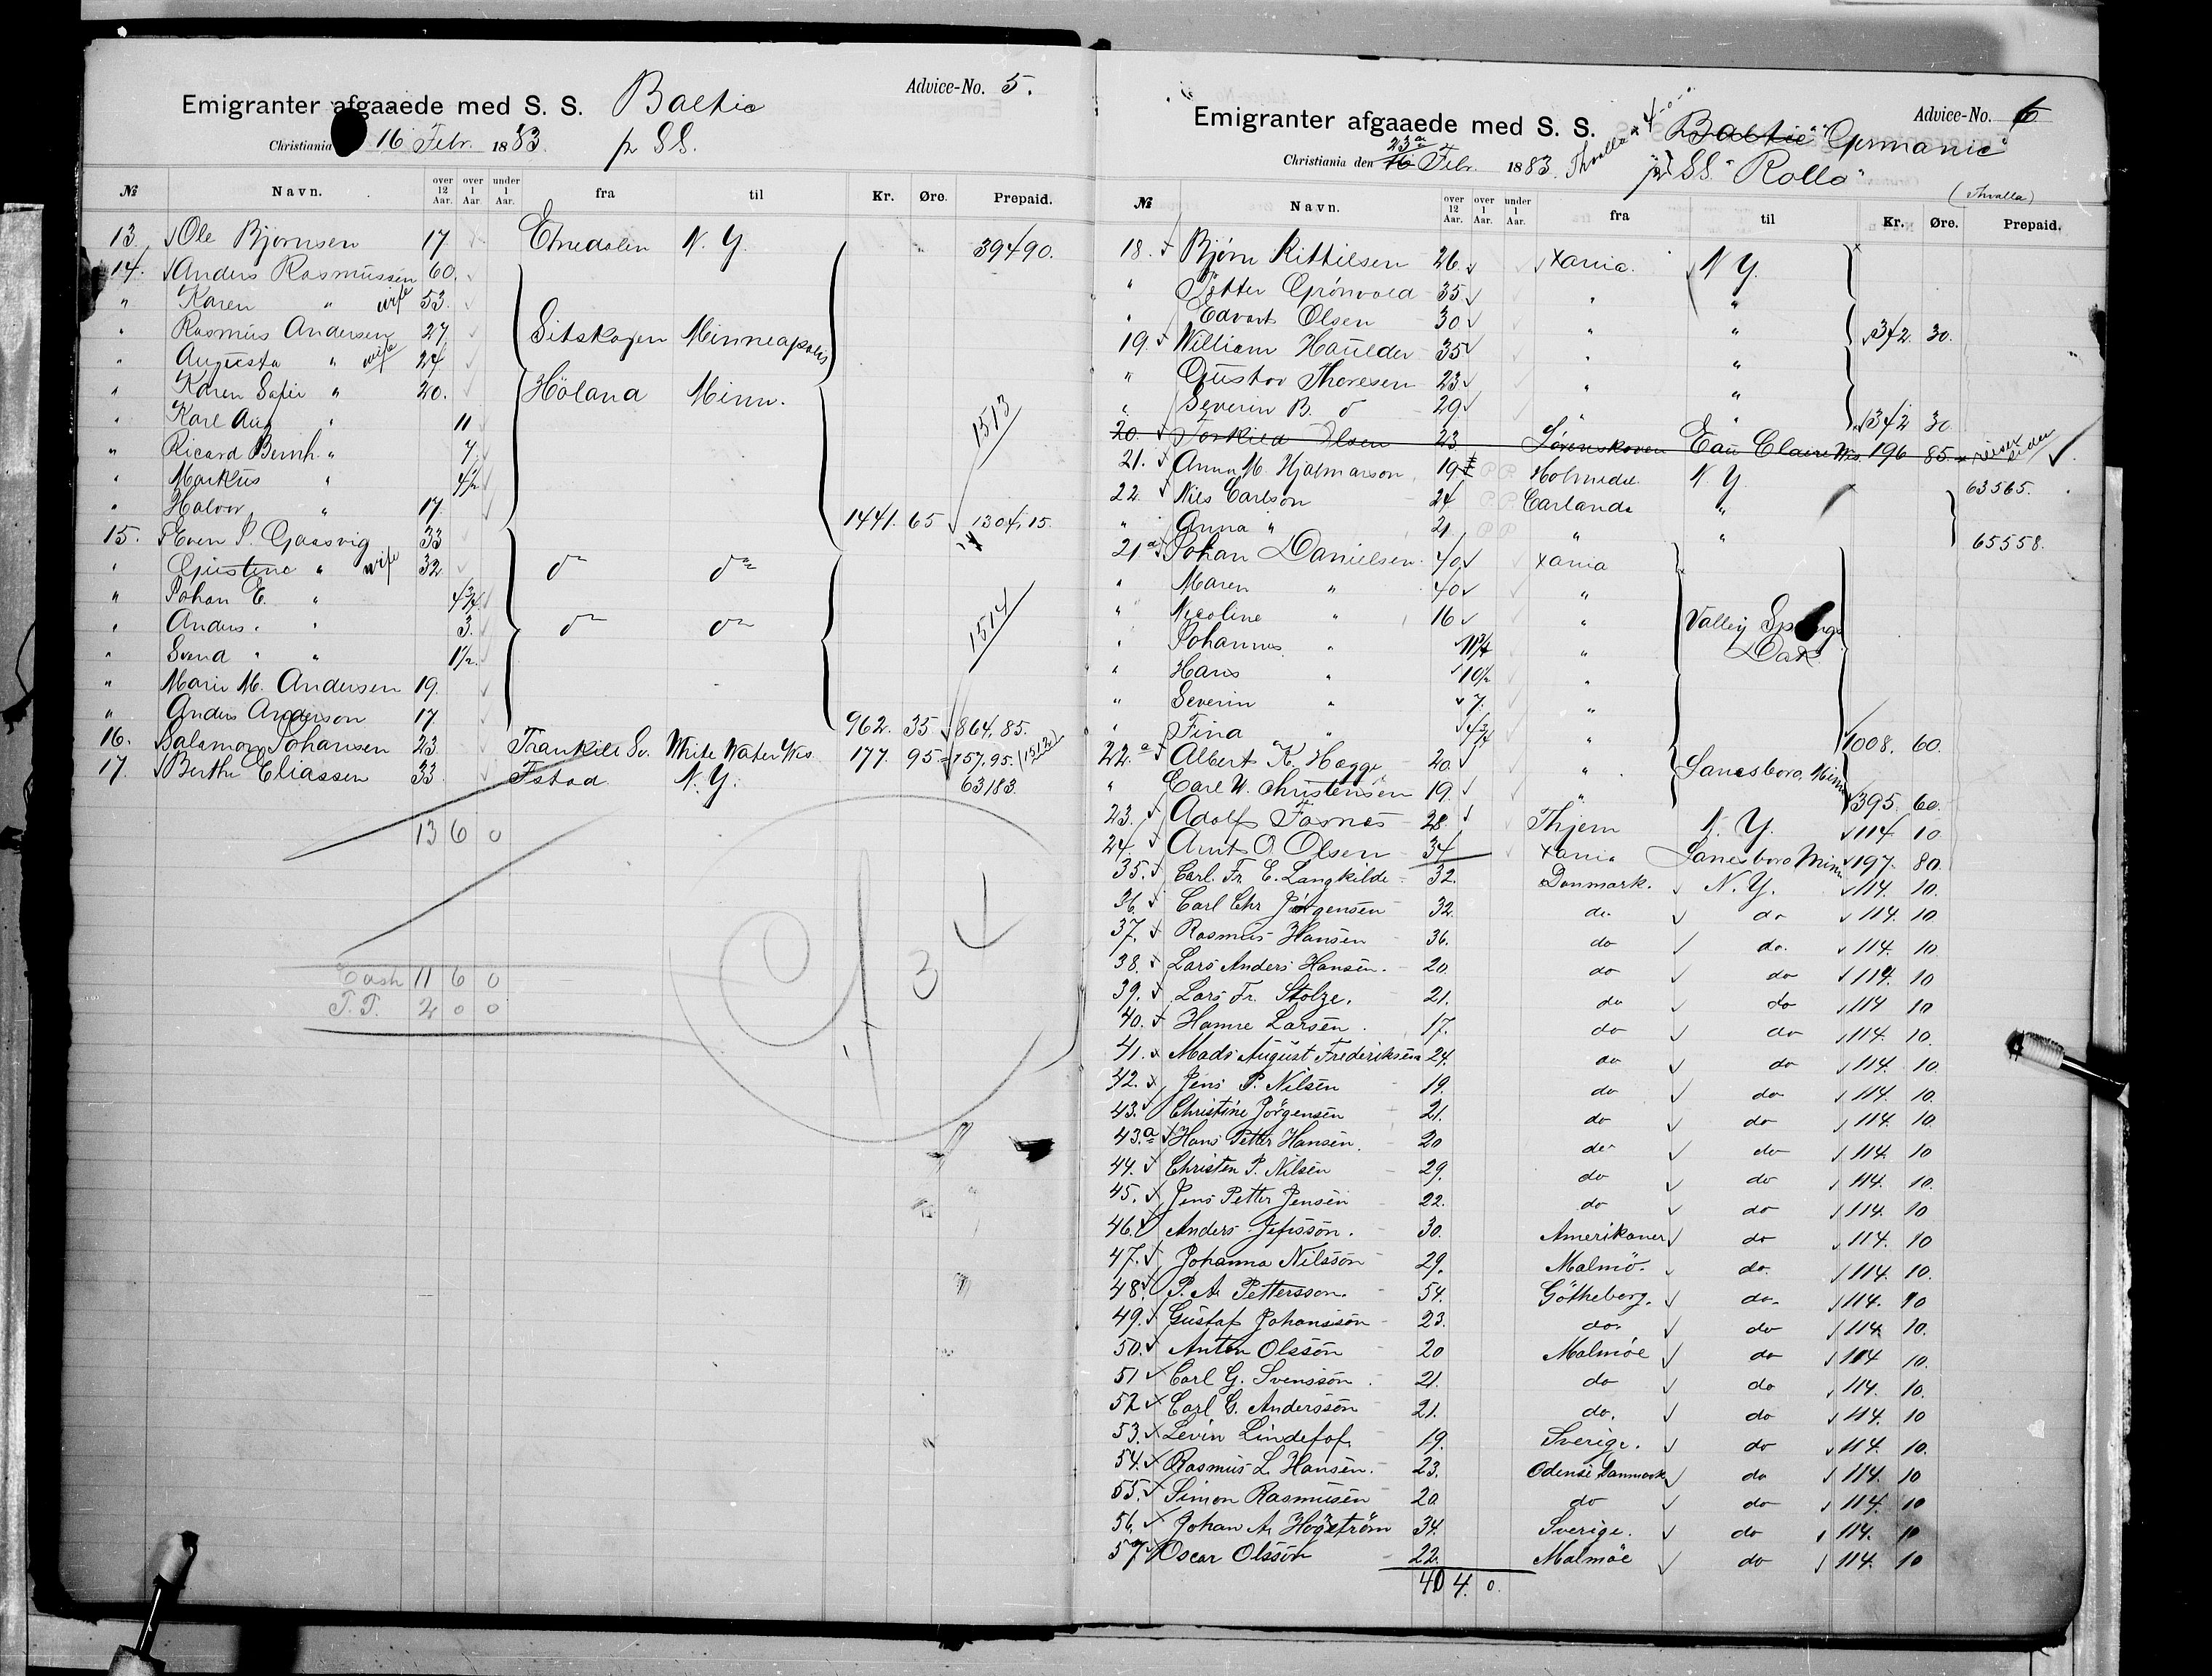 Advice-No. 5.
Emigranter afgaaede med S. S. Baltic
Christiania 16 Febr. 1883. pr SS.
№ Navn. over 12 Aar. over 1 Aar. under 1 Aar. fra til Kr. Øre. Prepaid.
13 Ole Bjørnsen 17. Etnedalen N. Y. 39490.
14. Anders Rasmussen 60.
" Karen " wife 53.
" Rasmus Andersen 27
" Augusta " wife 24 Sitskogen Minneapolis
" Karen Sofie " 20. Höland Minn.
" Karl Aug " 11
" Ricard Bernh. " 7. 1513
" Markus " 4½
" Halvor " 17. 1441. 65 1304,15.
15. Even P. Gaasvig 33
" Gustine " wife 32 do do
" Johan E. " 4¾
" Anders " " 3. do do 1514
" Svend " " 1½.
" Marie M. Andersen 19.
" Anders Anderson 17. 962. 35 864,85.
16. Salamon Johansen 23 Trankill Sv. White Water Wis. 177. 95 157,95. (1512)
17. Berthe Eliassen 33. Fstad N. Y. 63183.
13 6 0
Cash 11 6 0
P.P. 2 0 0
Advice-No. 6
Emigranter afgaaede med S. S. Baltic "Germanic"
Christiania den 16 23de Febr. 1883. Thvalla pr SS. "Rollo"
(Thvalla)
№ Navn. over 12 Aar. over 1 Aar. under 1 Aar. fra til Kr. Øre. Prepaid.
18. Bjørn Kittilsen 26 Xania. N Y.
" Petter Grönvold 35 " "
" Edvart Olsen 30 " " 342. 30.
19. William Haulder 35 " "
" Gustav Thoresen 23 " "
" Severin B. do 29 " " 342 30
20. Torkild Olsen 23 Sørenskoven Eau Claire Wis. 196 85
21. Anna M. Hjalmarson 19 PP. Holmedal N Y 63565.
22. Nils Carlson 24 P.P. Earlanda "
" Anna " 21 PP " " 65558.
21a Johan Danielsen 40 Xania
" Maren " 40 "
" Nicoline " 16 " Valley Springs
" Johannes " 11¾ " Dak.
" Hans " 10½ "
" Severin " 7. "
" Fina " 4¾ " 1008. 60.
22.a Albert K. Hagge 20 " Lanesboro, Minn
" Carl W. Christensen 19. " 395 60.
23. Adolf Fosnes 28 Thjem N. Y. 114 10
24. Arnt O Olsen 34 Xania Lanesboro Minn 197. 80.
35. Carl. Fr. E. Langkilde 32. Danmark. N. Y. 114. 10.
36. Carl Chr Jørgensen 32. do do 114. 10
37. Rasmus Hansen 36. do do. 114. 10
38. Lars Anders Hansen. 20. do do 114. 10
39. Lars Fr. Stolze. 21. do do 114 10
40. Hanne Larsen. 17. do do 114. 10.
41. Mads August Frederiksen 24. do do 114. 10
42. Jens P. Nilsen 19. do do 114. 10.
43. Christine Jörgensen 21. do do 114. 10.
43.a Hans Petter Hansen. 20 do do 114. 10
44. Christen P. Nilsen 29. do do 114. 10.
45. Jens Petter Jensen 22. do do 114. 10
46. Anders Jepsson. 30. Amerikaner do 114. 10
47. Johanna Nilsson 29. Malmö. do. 114. 10.
48. P. A. Pettersson. 54. Götheborg. do. 114. 10
49. Gustaf Johansson 23. do. do 114. 10.
50. Anton Olsson 20 Malmöe do 114 10.
51 Carl G. Svensson. 21. do do 114. 10.
52 Carl G. Andersson 21. do. do 114. 10
53. Levin Lindelof. 19. Sverige. do 114. 10.
54. Rasmus L. Hansen. 23. Odense Danmark do 114. 10
55. Simon Rasmusen 20 do do 114. 10
56. Johan A. Hogström 34. Sverige. do 114. 10
57. Oscar Olsson 22. Malmöe do 114. 10
40 4. 0.